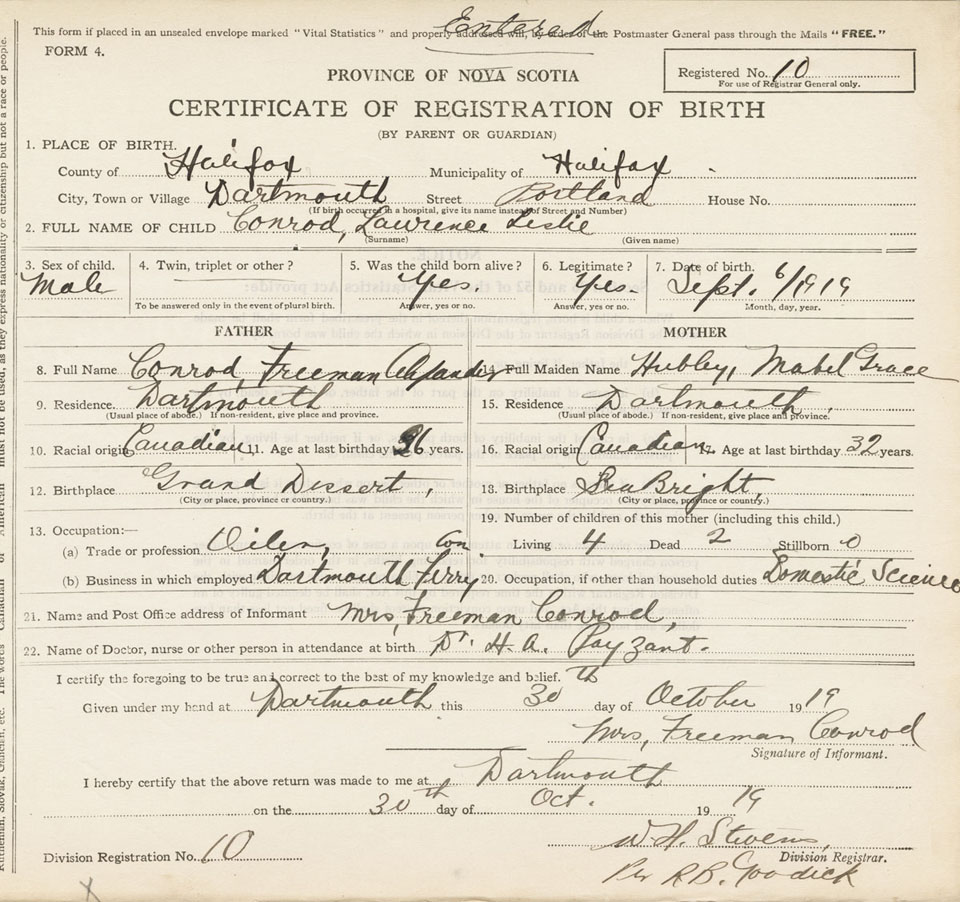 Entered
This form if placed in an unsealed envelope marked "Vital Statistics" and properly addressed will, by order of the Postmaster General pass through the Mails "FREE."
FORM 4.
Registered No. 10
For use of Registrar General only.
PROVINCE OF NOVA SCOTIA
CERTIFICATE OF REGISTRATION OF BIRTH
(BY PARENT OR GUARDIAN)
1. PLACE OF BIRTH.
County of Halifax Municipality of Halifax
City, Town or Village Dartmouth Street Portland House No.
(If birth occurred in a hospital, give its name instead of Street and Number)
2. FULL NAME OF CHILD Conrod, Lawrence Leslie
(Surname) (Given name)
3. Sex of child. 4. Twin, triplet or other? 5. Was the child born alive? 6. Legitimate? 7. Date of birth.
Male Yes. Yes. Sept. 6/1919
To be answered only in the event of plural birth. Answer, yes or no. Answer, yes or no. Month, day, year.
FATHER MOTHER
8. Full Name Conrod, Freeman Alexander 14. Full Maiden Name Hubley, Mabel Grace
9. Residence Dartmouth 15. Residence Dartmouth,
(Usual place of abode.) If non-resident, give place and province. (Usual place of abode.) If non-resident, give place and province.
10. Racial origin Canadian 11. Age at last birthday 36 years. 16. Racial origin Canadian 17. Age at last birthday 32 years.
12. Birthplace Grand Dissert, 18. Birthplace Sea Bright,
(City or place, province or country.) (City or place, province or country.)
13. Occupation:— 19. Number of children of this mother (including this child.)
(a) Trade or profession Oiler, on Living 4 Dead 2 Stillborn 0
(b) Business in which employed Dartmouth Ferry 20. Occupation, if other than household duties Domestic Science
21. Name and Post Office address of Informant Mrs, Freeman Conrod,
22. Name of Doctor, nurse or other person in attendance at birth Dr. H. A. Payzant.
I certify the foregoing to be true and correct to the best of my knowledge and belief.
Given under my hand at Dartmouth this 30th day of October 1919
Mrs, Freeman Conrod
Signature of Informant.
I hereby certify that the above return was made to me at Dartmouth
on the 30th day of Oct. 1919
W. H. Stevens,
Division Registration No. 10 Division Registrar.
Per R. B. Goodick